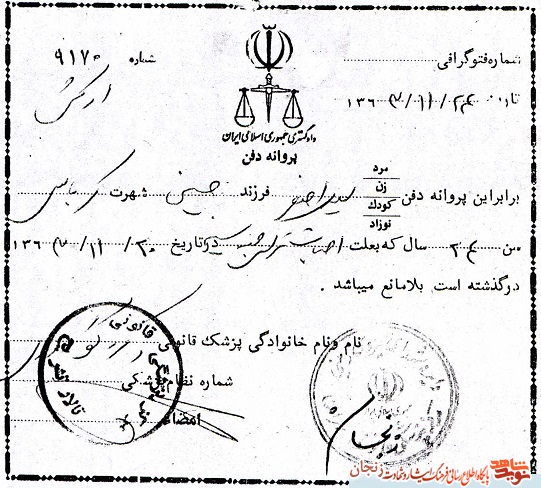 شماره فتوگرافی
شماره ۹۱۷۰
تاریخ ۲۴/۱۱/۱۳۶۳
ارتش
دادگستری جمهوری اسلامی ایران
پروانه دفن
مرد
زن
کودک
نوزاد
برابر این پروانه دفن فرزند حسین شهرت
سن ۲۴ سال که بعلت اصابت ترکش در تاریخ ۲۰/۱۱/۱۳۶۳
درگذشته است بلامانع میباشد .
نام و نام خانوادگی پزشک قانونی
شماره نظام پزشکی
امضاء
پزشکی قانونی
تالار تشریح
زنجان
نوید شاهد
پایگاه اطلاع رسانی فرهنگ ایثار و شهادت زنجان